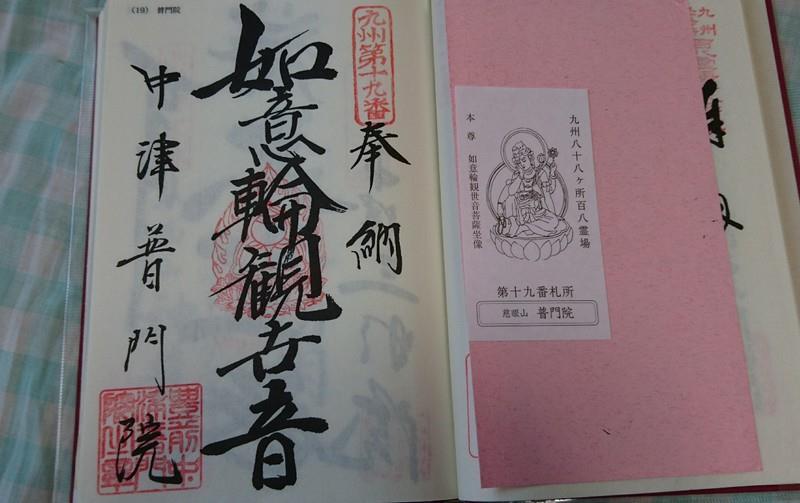 (19) 普門院
九州第十九番
奉納
如意輪観世音
中津普門院
九州八十八ヶ所百八霊場
本尊 如意輪観世音菩薩坐像
第十九番札所
慈眼山 普門院
九州